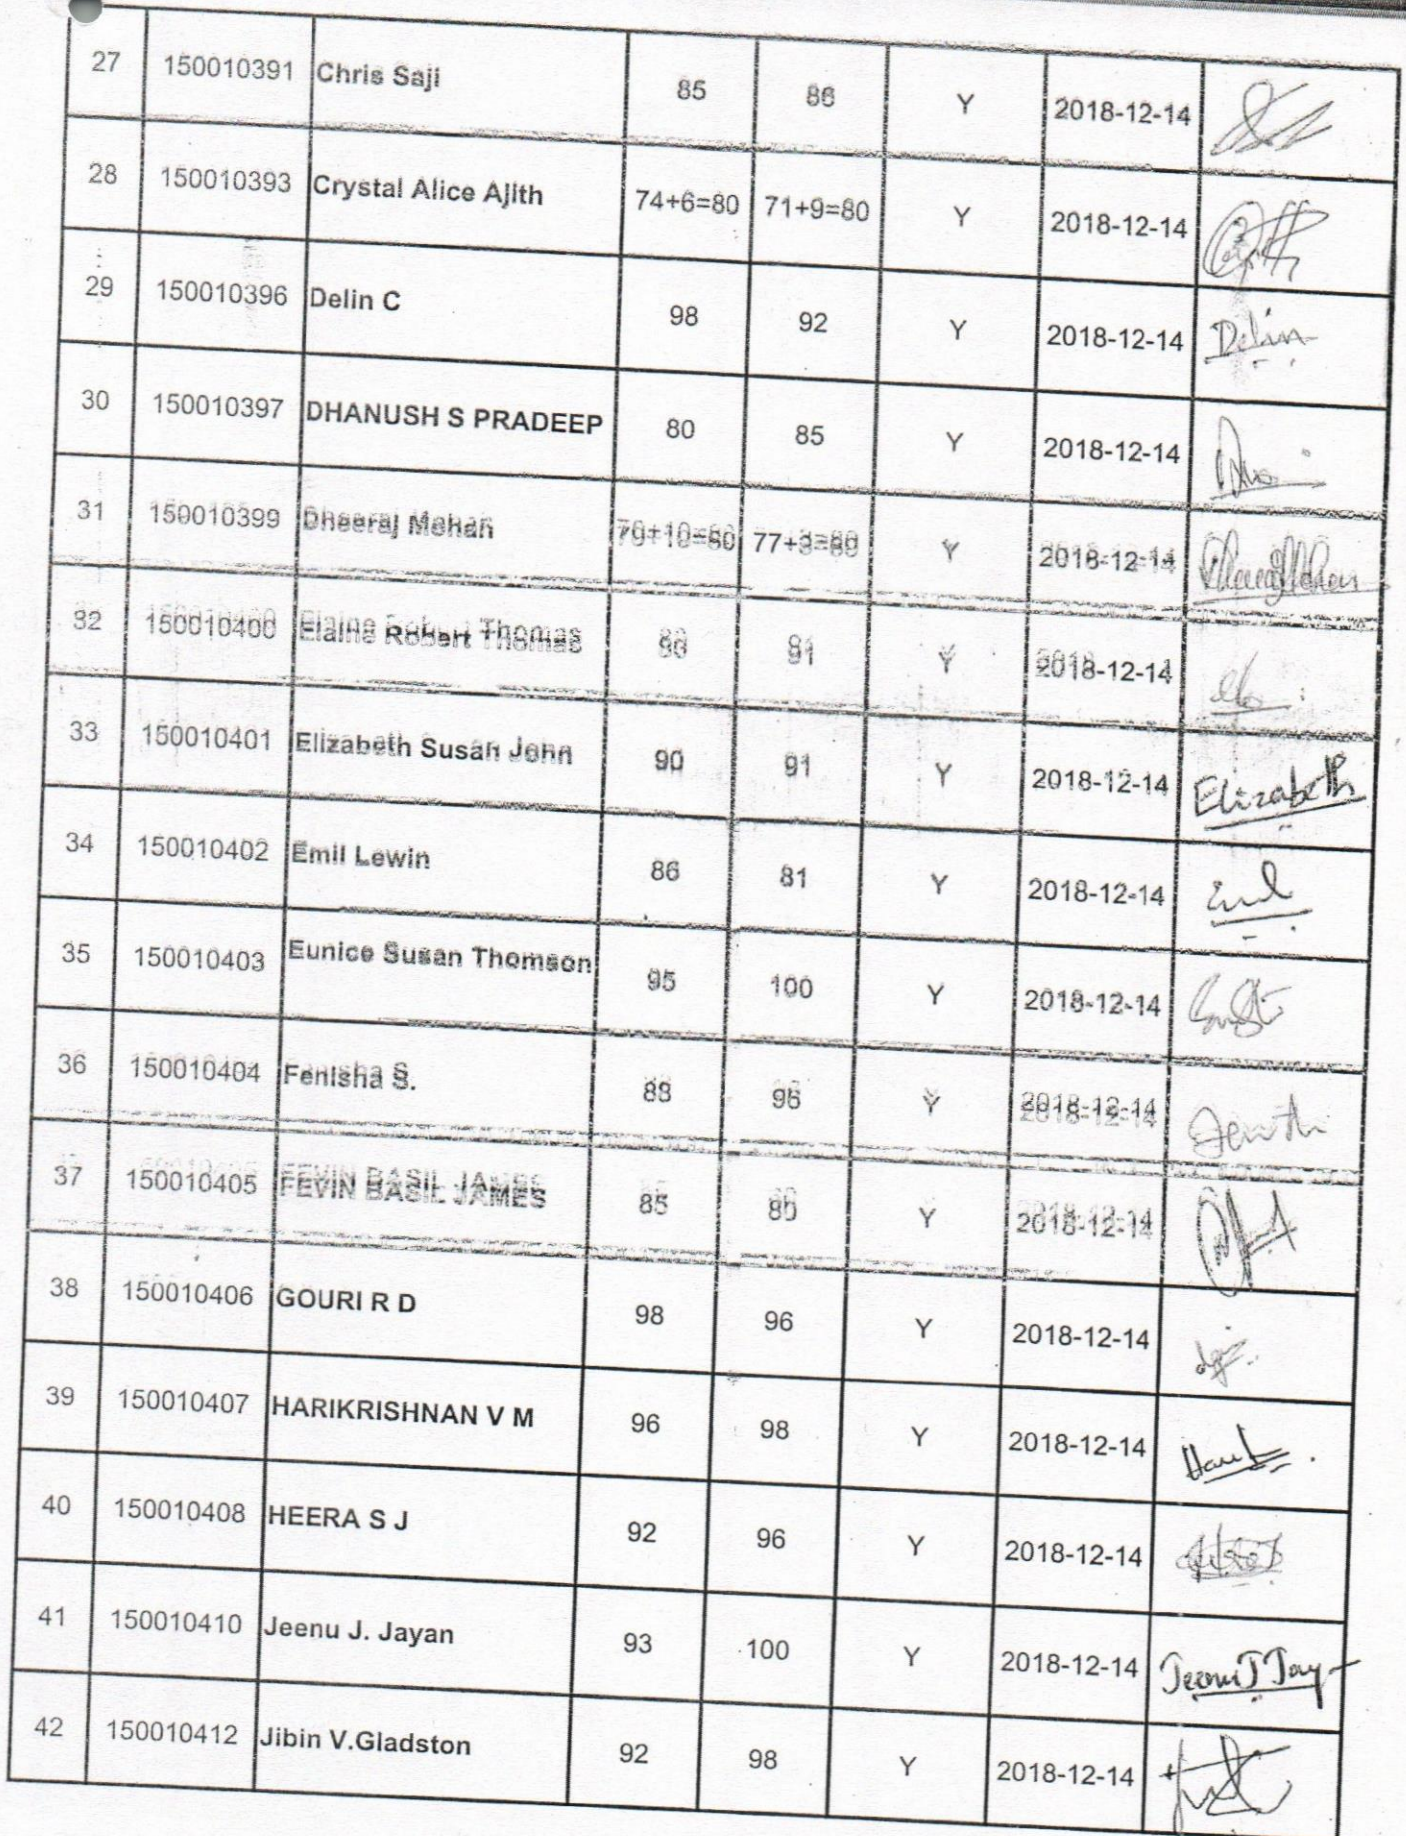 27 150010391 Chris Saji 85 86 Y 2018-12-14
28 150010393 Crystal Alice Ajith 74+6=80 71+9=80 Y 2018-12-14
29 150010396 Delin C 98 92 Y 2018-12-14 Delin
30 150010397 DHANUSH S PRADEEP 80 85 Y 2018-12-14
31 150010399 Dheeraj Mohan 70+10=80 77+3=80 Y 2018-12-14
32 150010400 Elaine Robert Thomas Y 2018-12-14
33 150010401 Elizabeth Susan John 90 91 Y 2018-12-14 Elizabeth
34 150010402 Emil Lewin 86 81 Y 2018-12-14 Emil
35 150010403 Eunice Susan Thomson 95 100 Y 2018-12-14
36 150010404 Fenisha S. 88 96 Y 2018-12-14
37 150010405 FEVIN BASIL JAMES 85 80 Y 2018-12-14
38 150010406 GOURI R D 98 96 Y 2018-12-14
39 150010407 HARIKRISHNAN V M 96 98 Y 2018-12-14
40 150010408 HEERA S J 92 96 Y 2018-12-14
41 150010410 Jeenu J. Jayan 93 100 Y 2018-12-14 Jeenu J Jay
42 150010412 Jibin V.Gladston 92 98 Y 2018-12-14